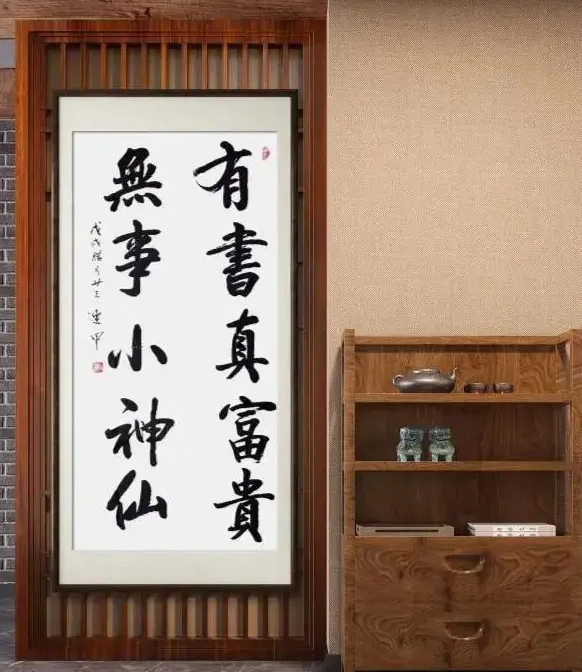 有書真富貴
無事小神仙
戊戌臘月廿三 連甲